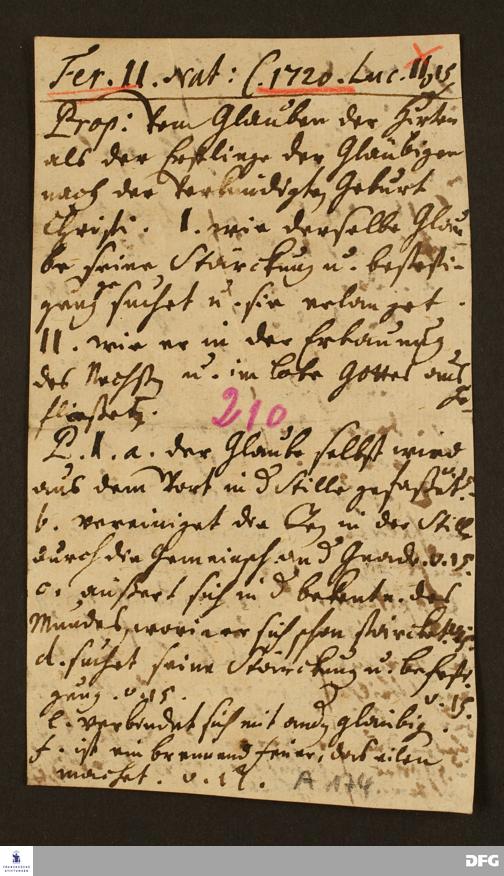 Fer. II. Nat: C. 1720. Luc. II, 15
Prop: Vom Glauben der Hirten
als der Erstlinge der Gläubigen
nach der Verkündigten Geburt
Christi. I. wie derselbe Glau-
be seine Stärckung u. befesti-
gung suchet u. sie erlanget.
II. wie er in der Erbauung
des Nechsten u. im lobe Gottes aus
fließet.
210
P. I. a. der Glaube selbst wird
aus dem Wort in d Stille gefaßet
b. vereiniget die in der Stille
durch die Gemeinsch. an d Gnade. v. 15.
c. äußert sich in d bekentn. des
Mundes, worin er sich schon stärcket
d. suchet seine Stärckung u. befesti-
gung. v. 15.
v. 15.
e. verbindet sich mit andn gläubign.
f. ist ein brennend feuer, das eilen
machet. v. 16.
A 174
FRANCKESCHE
STIFTUNGEN
DFG